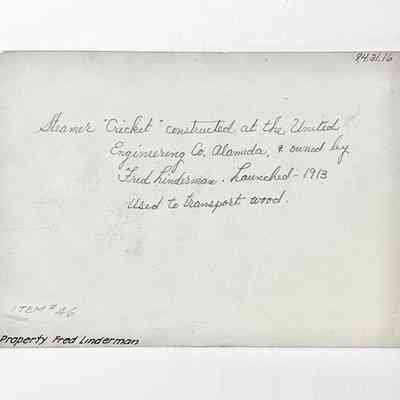 84.31.16
Steamer "Cricket" constructed at the United
Engineering Co. Alameda, & owned by
Fred Linderman. Launched - 1913
Used to transport wood.
ITEM # 46
Property Fred Linderman